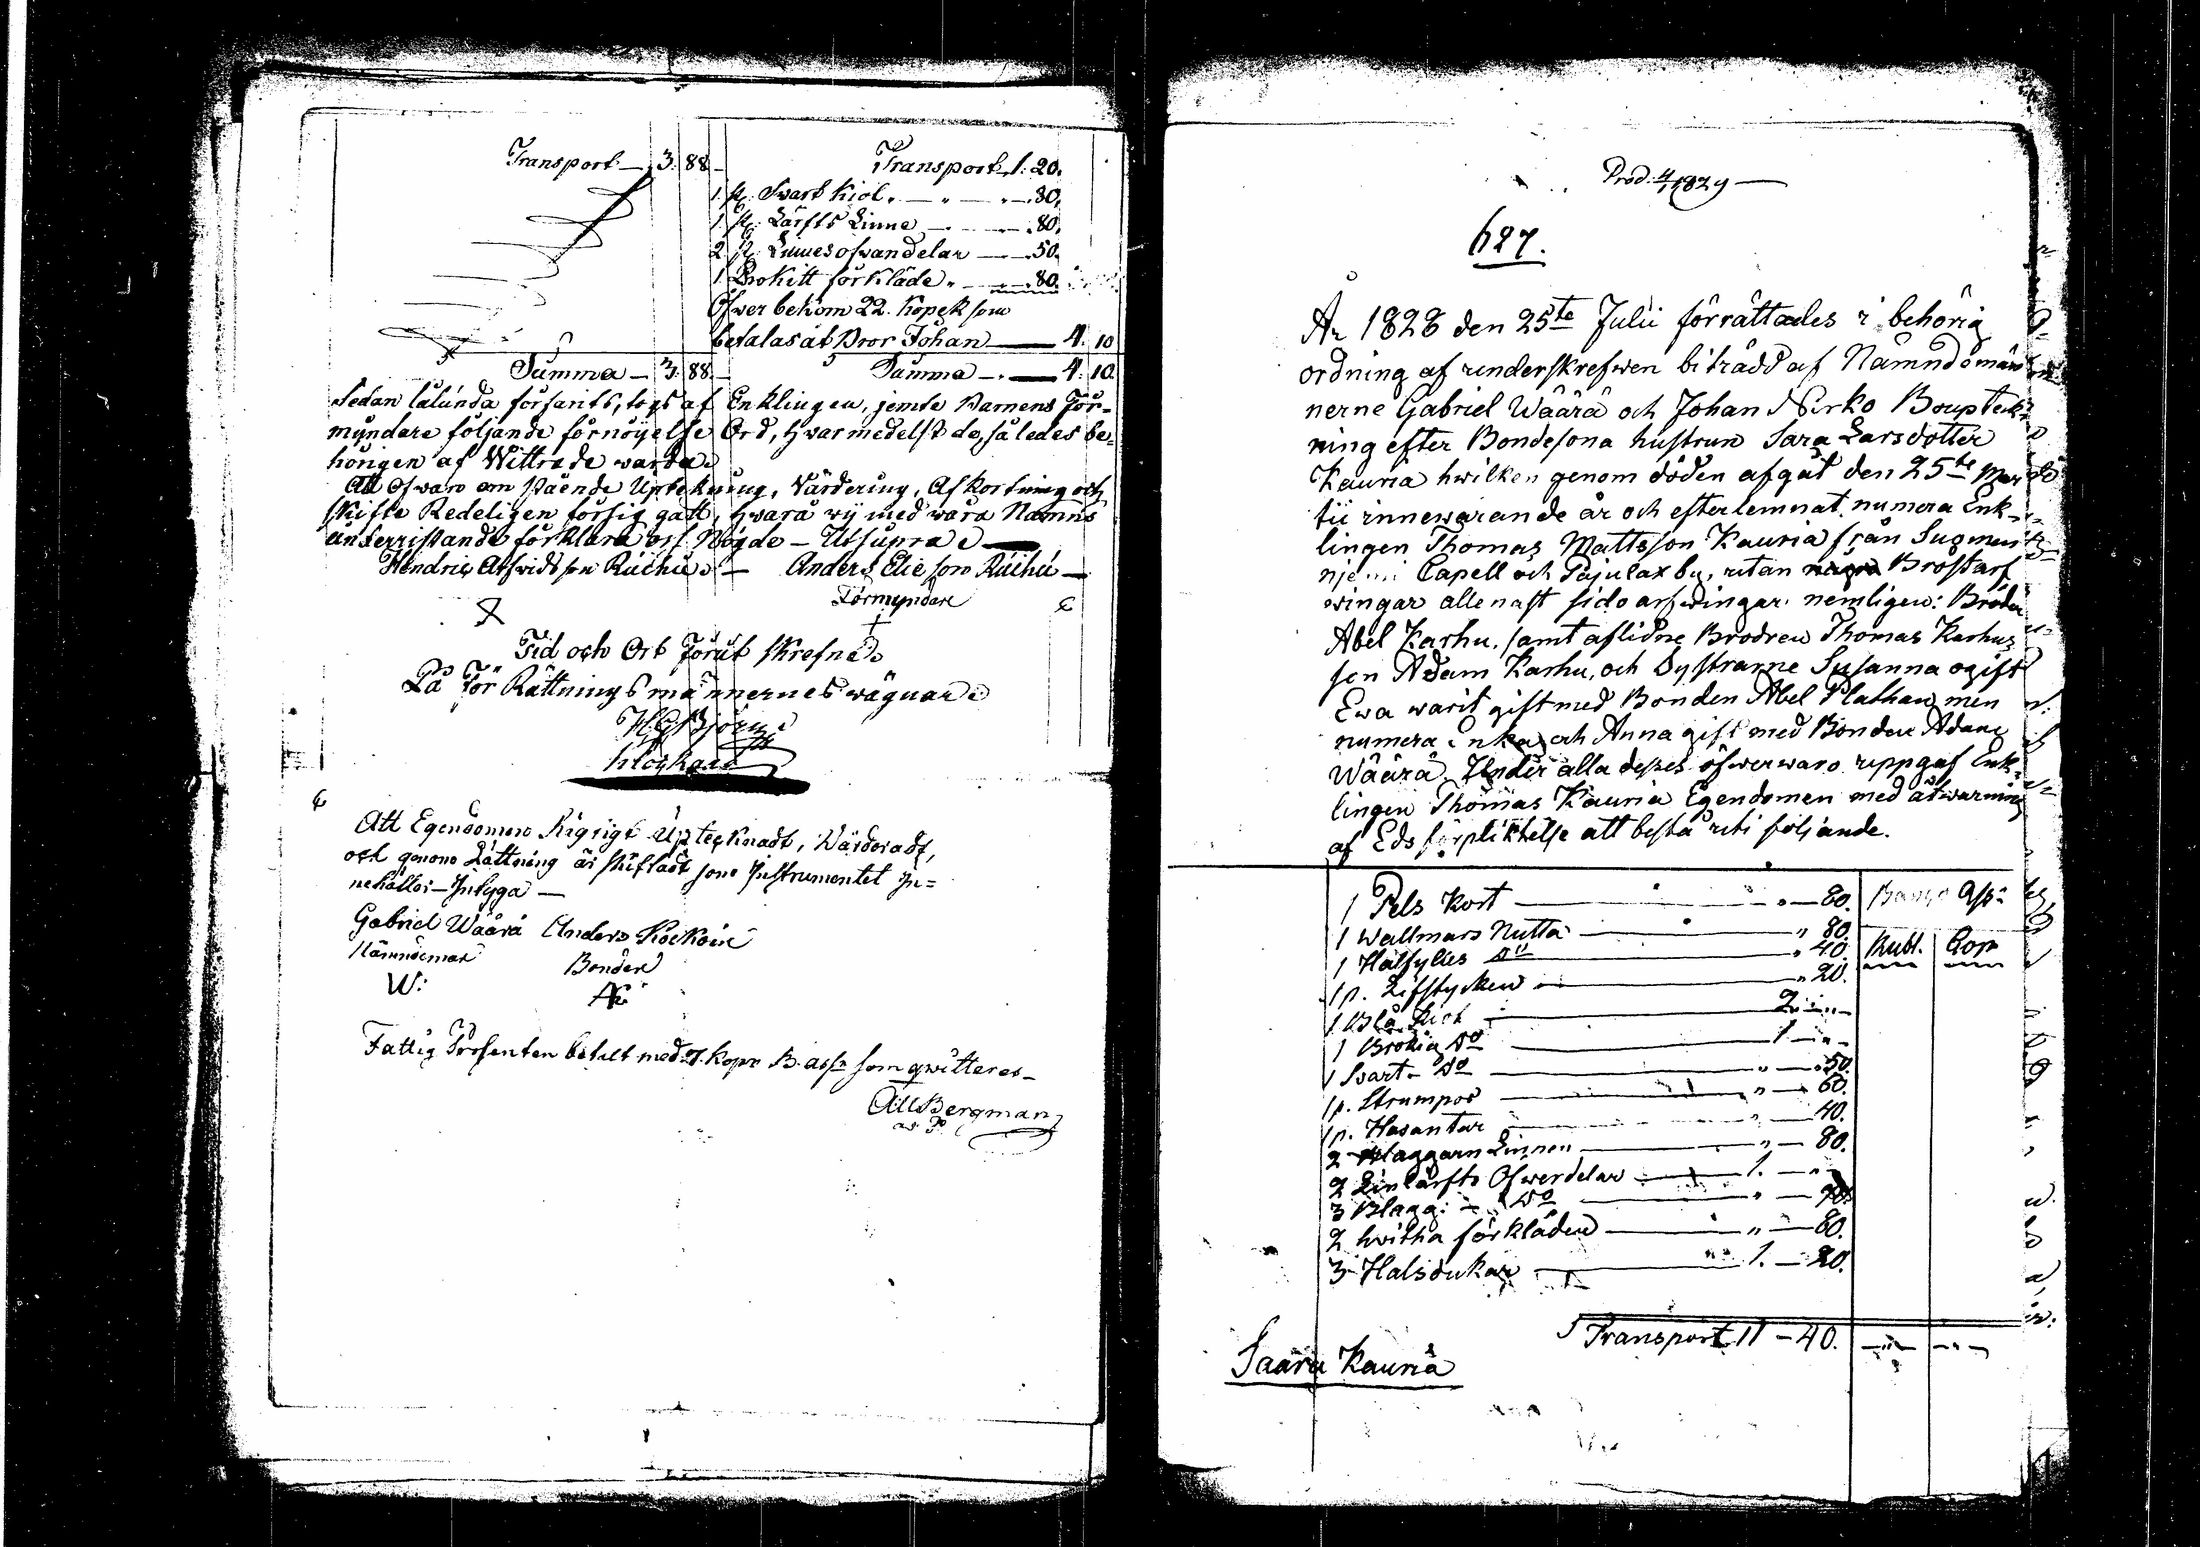 Transport — 3. 88. —
Transport. 1. 20.
1 st. Swart Kiol. — " — " — 80.
1 st. Lärfts Linne — — 80.
2 st. Linnesofwandelar — 50.
1 Brokitt förkläde. " — 80.
Öfwer bekom 22. Kopek som
betalas åt Bror Johan — 4. 10
Summa — 3. 88. —
Summa — 4. 10.
Sedan sålunda forfants, togs af Enklingen, jemte Barnens För-
myndare följande förnöyelse Ord, hwarmedelst de, således be-
hörigen af Wittrade warda.
Att ofwan om stående Uptekning, Värdering, Afkortning och
skifte Redeligen försig gått, hwarå wij med wåra Namns
underristande förklara oss Nögde — Ut supra
Hendric Arfwidsson Ruuhu — Anders Eliesson Ruuhu —
Förmyndare
Tid och Ort förut skrefne
På För Rättningsmännernes wägnar
H G Björn
klockare
Att Egendomen Rigtigt Uptecknadt, Wärderadt,
och genom Lättning är skiftadt som Instrumentet In=
nehåller — Intyga —
Gabriel Wäärä Anders
Nämndeman Bonden
W:
Fattig Prosenten betalt med 7. Kopr B. assr som qwitteres —
Bergman
Prod. 4/1 1829 —
627.
År 1828 den 25te Julii förrättades i behörig
ordning af underskrefwen biträdd af Nämndemän
nerne Gabriel Wäärä och Johan Nirko Boupteck
ning efter Bondesona hustrun Sara Larsdotter
Kauria hwilken genom döden afgåt den 25te Mar
tii innewarande år och efterlemnat numera Enk-
lingen Thomas Mattsson Kauria från Suomen
njemi Capell och Pajulax by, utan några Bröstarf
wingar allenast sido arfwingar nemligen: Broder
Abel Karhu, samt aflidne Brodren Thomas Karhus
son Adam Karhu, och Systrarne Susanna ogift
Ewa warit gift med Bonden Abel Plathan men
numera Enka, och Anna gift med Bonden Adam
Wäärä. Under alla desses öfwerwaro uppgaf Enk-
lingen Thomas Kauria Egendomen med åtwarning
af Eds förpliktelse att bestå uti följande.
Banco Ass:
Rubl. Cop
1 Pels Kort — " — 80.
1 Wallmars Nutta — " 80.
1 Halfylles do — " 40.
1 p. Lifstycken — " 20.
1 Blå Kiol — 2. " —
1 Brokig do — 1 — " —
1 Svart — do — " — 50.
1 p. Strumpor — " — 60.
1 p. Hasantar — " — 40.
2 Blaggarn Linnen — " — 80.
2 Linlärfts Ofwerdelar — 1. — " —
3 Blagg: — do — " — 90.
2 hwitha förkläden — " — 80.
3 Halsdukar — 1. — 20.
Transport 11 — 40.
Saara Kauria